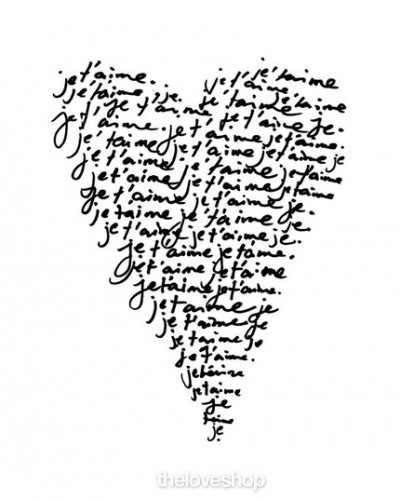 je t'aime. je t'aime
je t'aime, je. je t'aime.
je t'aime. je t'aime je t'aime
je t'aime. je t'aime je.
je t'aime je t'aime je t'aime.
je t'aime. je t'aime je t'aime je
je t'aime je t'aime je t'aime
je t'aime je t'aime je t'aime
je t'aime je t'aime je.
je t'aime je t'aime je.
je t'aime. je t'aime je.
je t'aime je t'aime.
je t'aime je t'aime
je t'aime je t'aime.
je t'aime je
je t'aime je
je t'aime je
je t'aime.
je t'aime
je
je
theloveshop